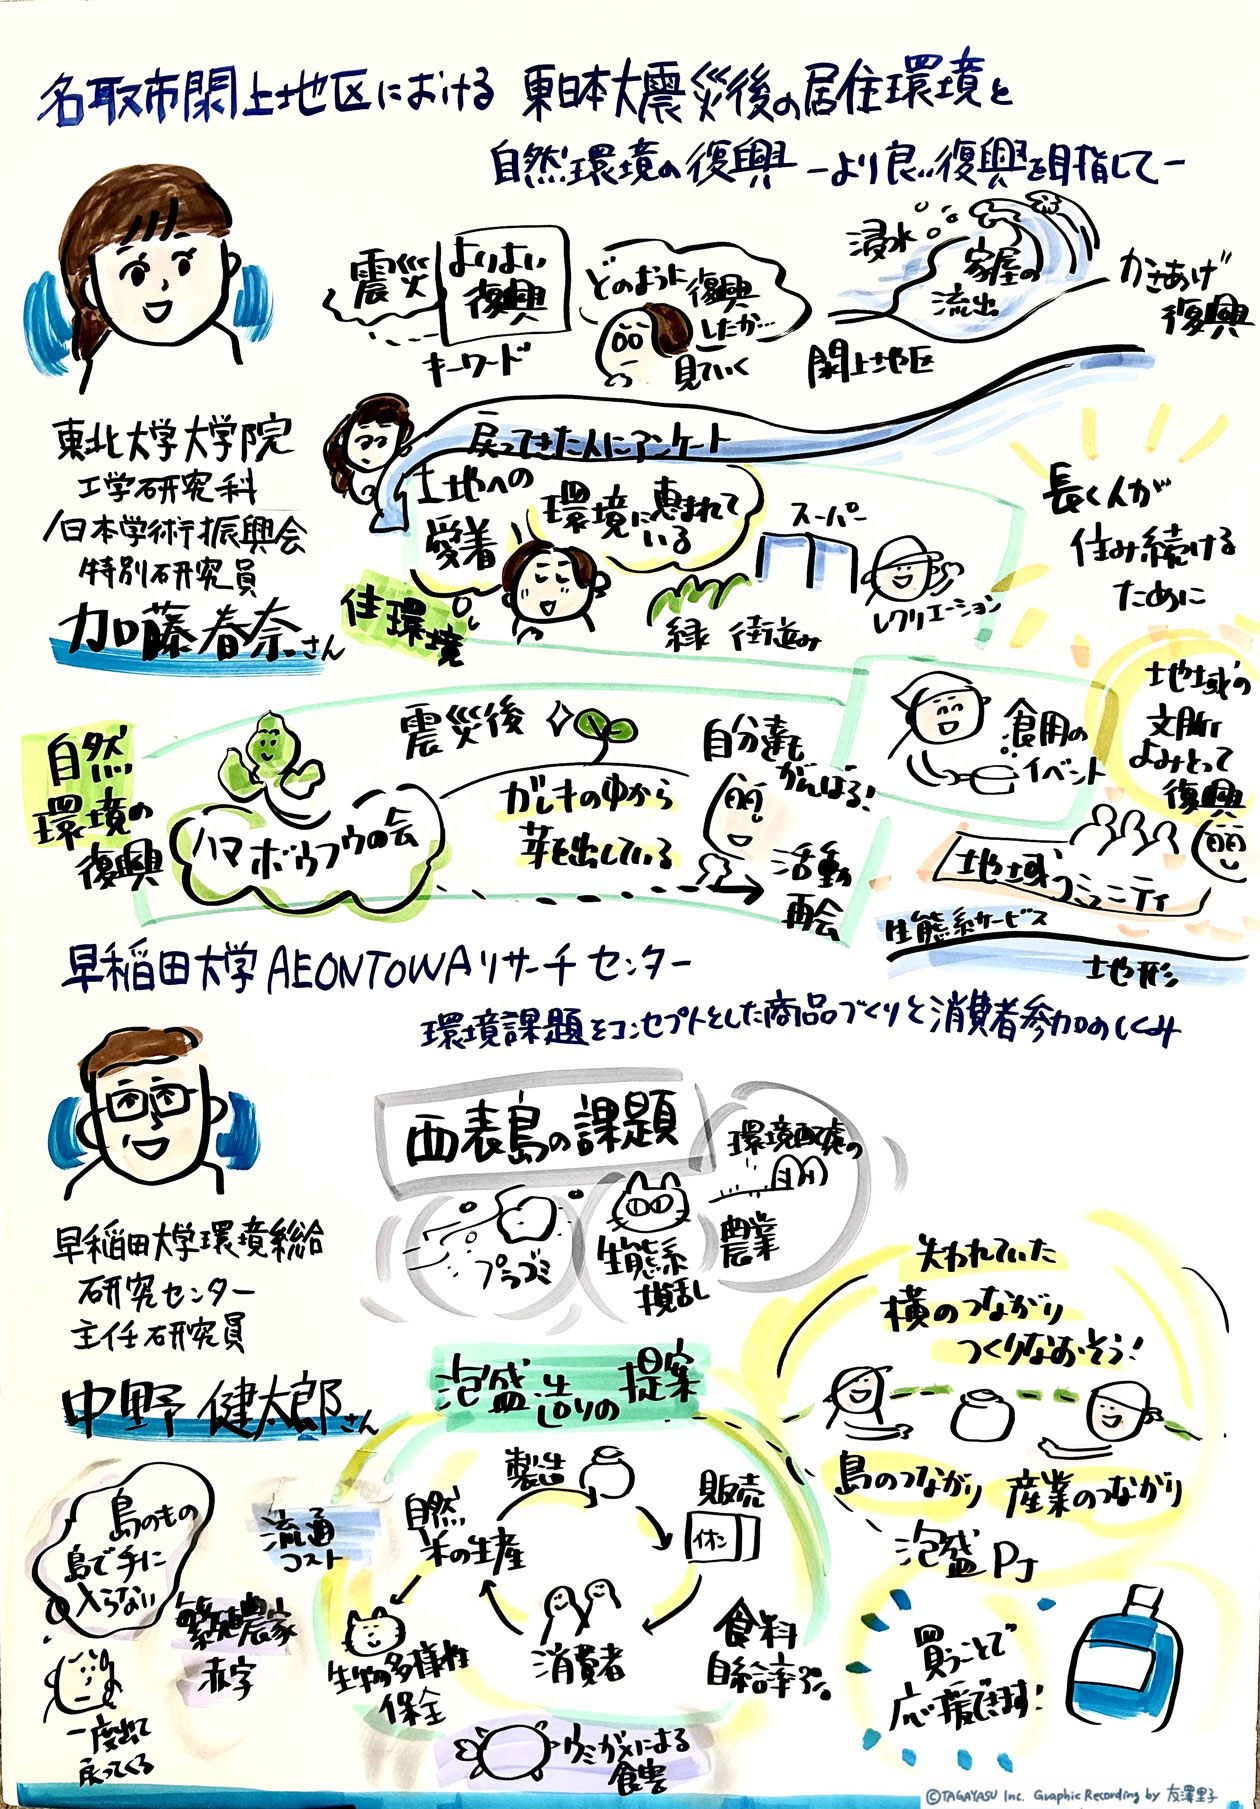 名取市閖上地区における 東日本大震災後の居住環境と
自然環境の復興 ーより良い復興を目指してー
震災
よりよい
復興
キーワード
どのように復興
したか…
見ていく
浸水
家屋の
流出
閖上地区
かさあげ
復興
東北大学大学院
工学研究科
/日本学術振興会
特別研究員
加藤春奈さん
戻ってきた人にアンケート
土地への
愛着
環境に恵まれて
いる
スーパー
レクリエーション
緑 街並み
住環境
長く人が
住み続ける
ために
自然
環境の
復興
ハマボウフウの会
震災後
ガレキの中から
芽を出している
自分達も
がんばる!
活動
再会
食用の
イベント
地域の
文脈
よみとって
復興
地域コミュニティ
生態系サービス
地形
早稲田大学 AEONTOWAリサーチセンター
環境課題をコンセプトとした商品づくりと消費者参加のしくみ
早稲田大学環境総合
研究センター
主任研究員
中野健太郎さん
西表島の課題
プラゴミ
生態系
撹乱
環境配慮の
農業
泡盛造りの提案
製造
販売
イオン
消費者
自然
米の生産
生物多様性
保全
食料
自給率3%
ウミガメによる
食害
島のもの
島で手に
入らない
流通
コスト
農家
赤字
一度出て
戻ってくる
失われていた
横のつながり
つくりなおそう!
島のつながり
産業のつながり
泡盛PJ
買うことで
応援できます!
©TAGAYASU Inc. Graphic Recording by 友澤里子